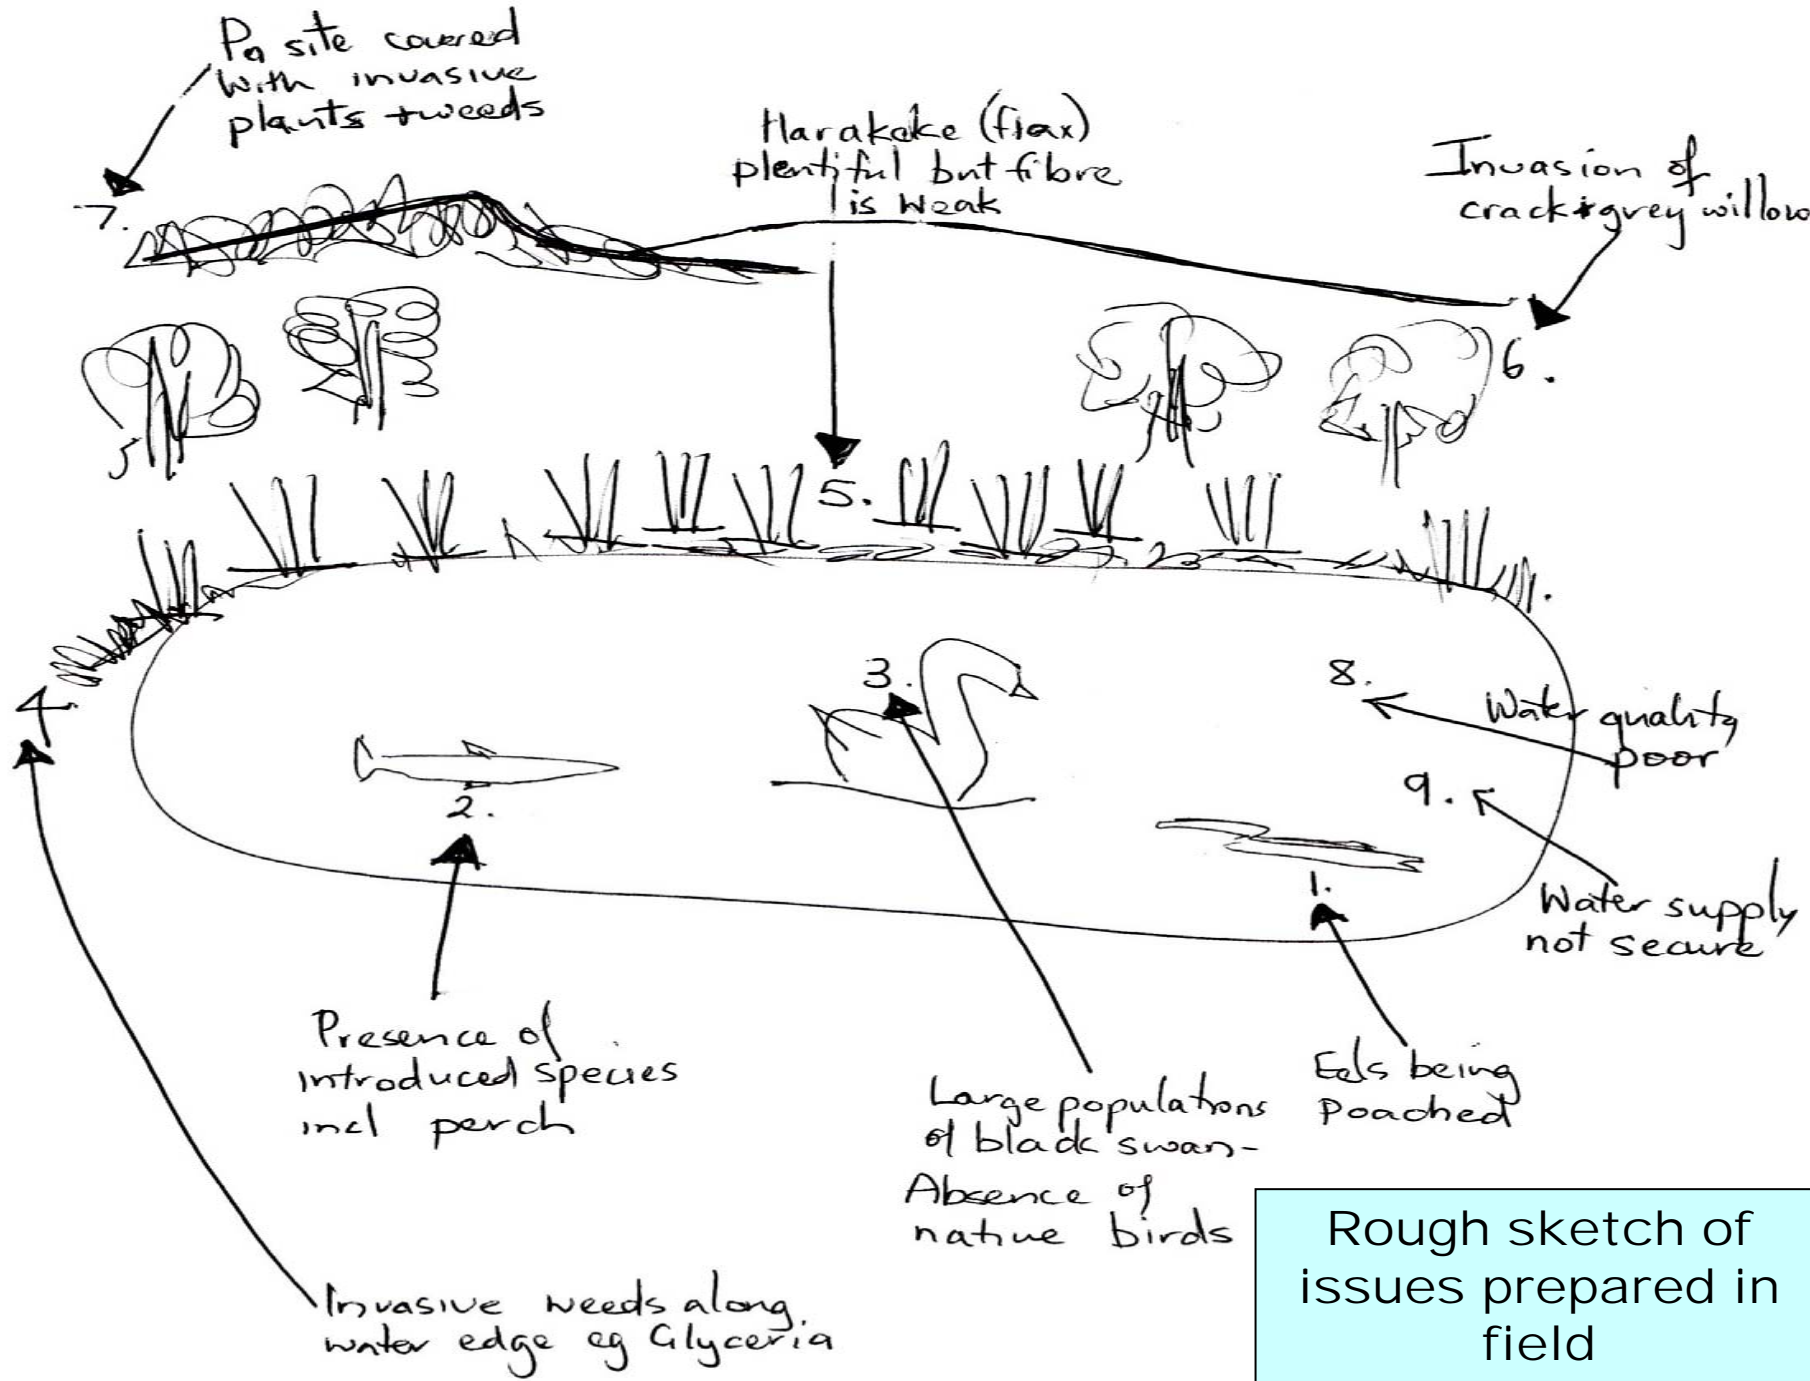 Pa site covered
with invasive
plants + weeds
7.
Harakeke (flax)
plentiful but fibre
is weak
Invasion of
crack + grey willow
6.
5.
4.
3.
8.
Water quality
poor
2.
9.
1.
Water supply
not secure
Presence of
introduced species
incl perch
Large populations
of black swan-
Absence of
native birds
Eels being
poached
Invasive weeds along
water edge eg Glyceria
Rough sketch of
issues prepared in
field